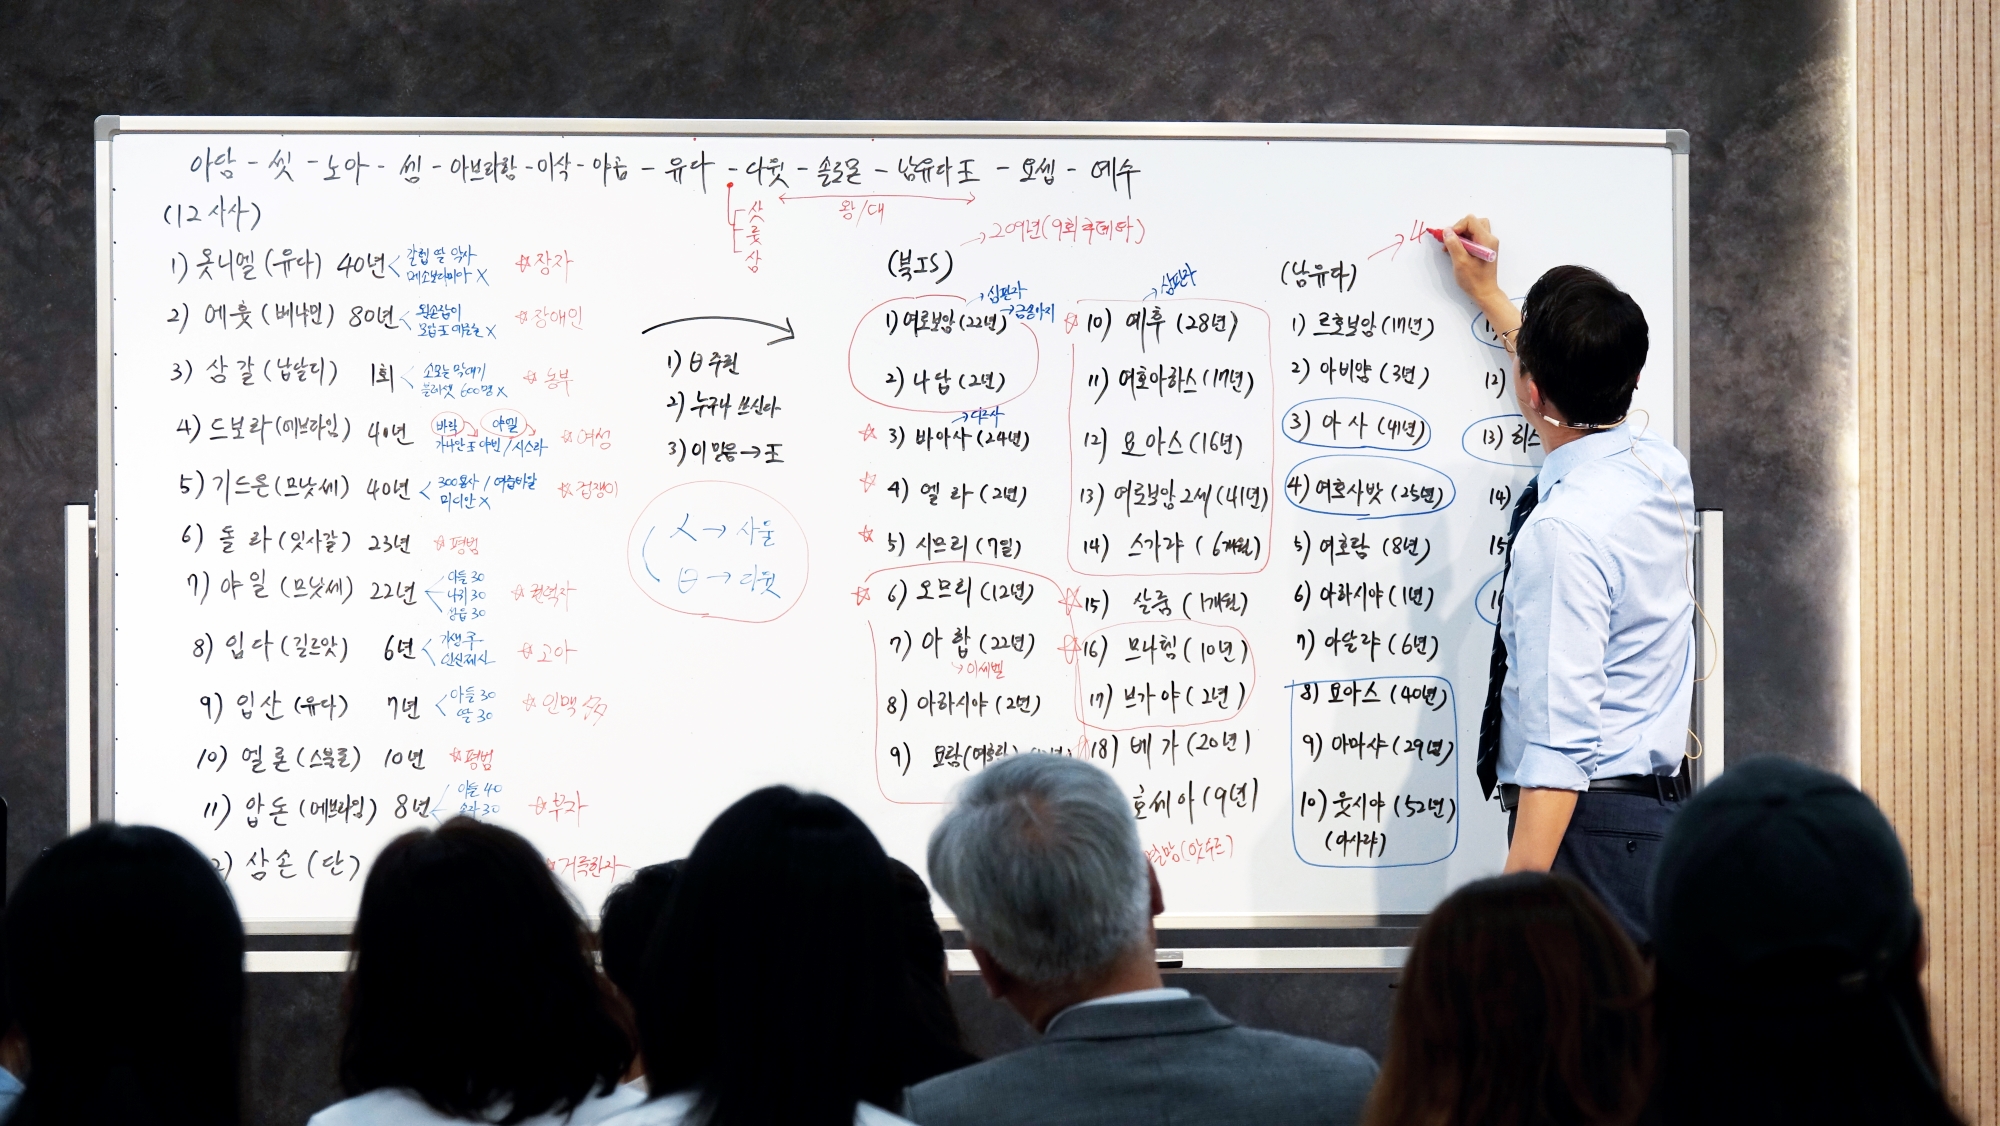 아담 - 씻 - 노아 - 셈 - 아브라함 - 이삭 - 야곱 - 유다 - 다윗 - 솔로몬 - 남유다王 - 요셉 - 예수
삿
룻
삼
왕/대
(12사사)
1) 옷니엘 (유다) 40년
갈렙 딸 악사
메소보다미아 X
☆장자
2) 에훗 (베냐민) 80년
왼손잡이
모압王 에글론 X
☆장애인
3) 삼갈 (납달리) 1회
소모는 막대기
블레셋 600명 X
☆농부
4) 드보라 (에브라임) 40년
바락 야엘
가나안王 야빈 / 시스라
☆여성
5) 기드온 (므낫세) 40년
300용사 / 여룹바알
미디안 X
☆겁쟁이
6) 돌라 (잇사갈) 23년
☆평범
7) 야일 (므낫세) 22년
아들 30
나귀 30
성읍 30
☆권력자
8) 입다 (길르앗) 6년
기생 子
인신제사
☆고아
9) 입산 (유다) 7년
아들 30
딸 30
☆인맥 多
10) 엘론 (스불론) 10년
☆평범
11) 압돈 (에브라임) 8년
아들 40
손자 30
☆부자
2) 삼손 (단)
거룩한자
1) 日 주권
2) 누구나 쓰신다
3) 이 믿음 → 王
人 → 사울
日 → 다윗
(북IS)
→ 209년 (9회 쿠데타)
1) 여로보암 (22년)
→ 심판자
→ 금송아지
2) 나답 (2년)
→ 디르사
☆ 3) 바아사 (24년)
☆ 4) 엘라 (2년)
☆ 5) 시므리 (7일)
☆ 6) 오므리 (12년)
7) 아합 (22년)
→ 이세벨
8) 아하시야 (2년)
9) 요람 (여호람)
→ 심판자
☆ 10) 예후 (28년)
11) 여호아하스 (17년)
12) 요아스 (16년)
13) 여로보암 2세 (41년)
14) 스가랴 (6개월)
☆ 15) 살룸 (1개월)
☆ 16) 므나헴 (10년)
17) 브가야 (2년)
☆ 18) 베가 (20년)
호세아 (9년)
(앗수르)
(남유다)
→ 4
1) 르호보암 (17년)
2) 아비얌 (3년)
3) 아사 (41년)
4) 여호사밧 (25년)
5) 여호람 (8년)
6) 아하시야 (1년)
7) 아달랴 (6년)
8) 요아스 (40년)
9) 아마샤 (29년)
10) 웃시야 (52년)
(아사랴)
12)
13) 히스
14)
15